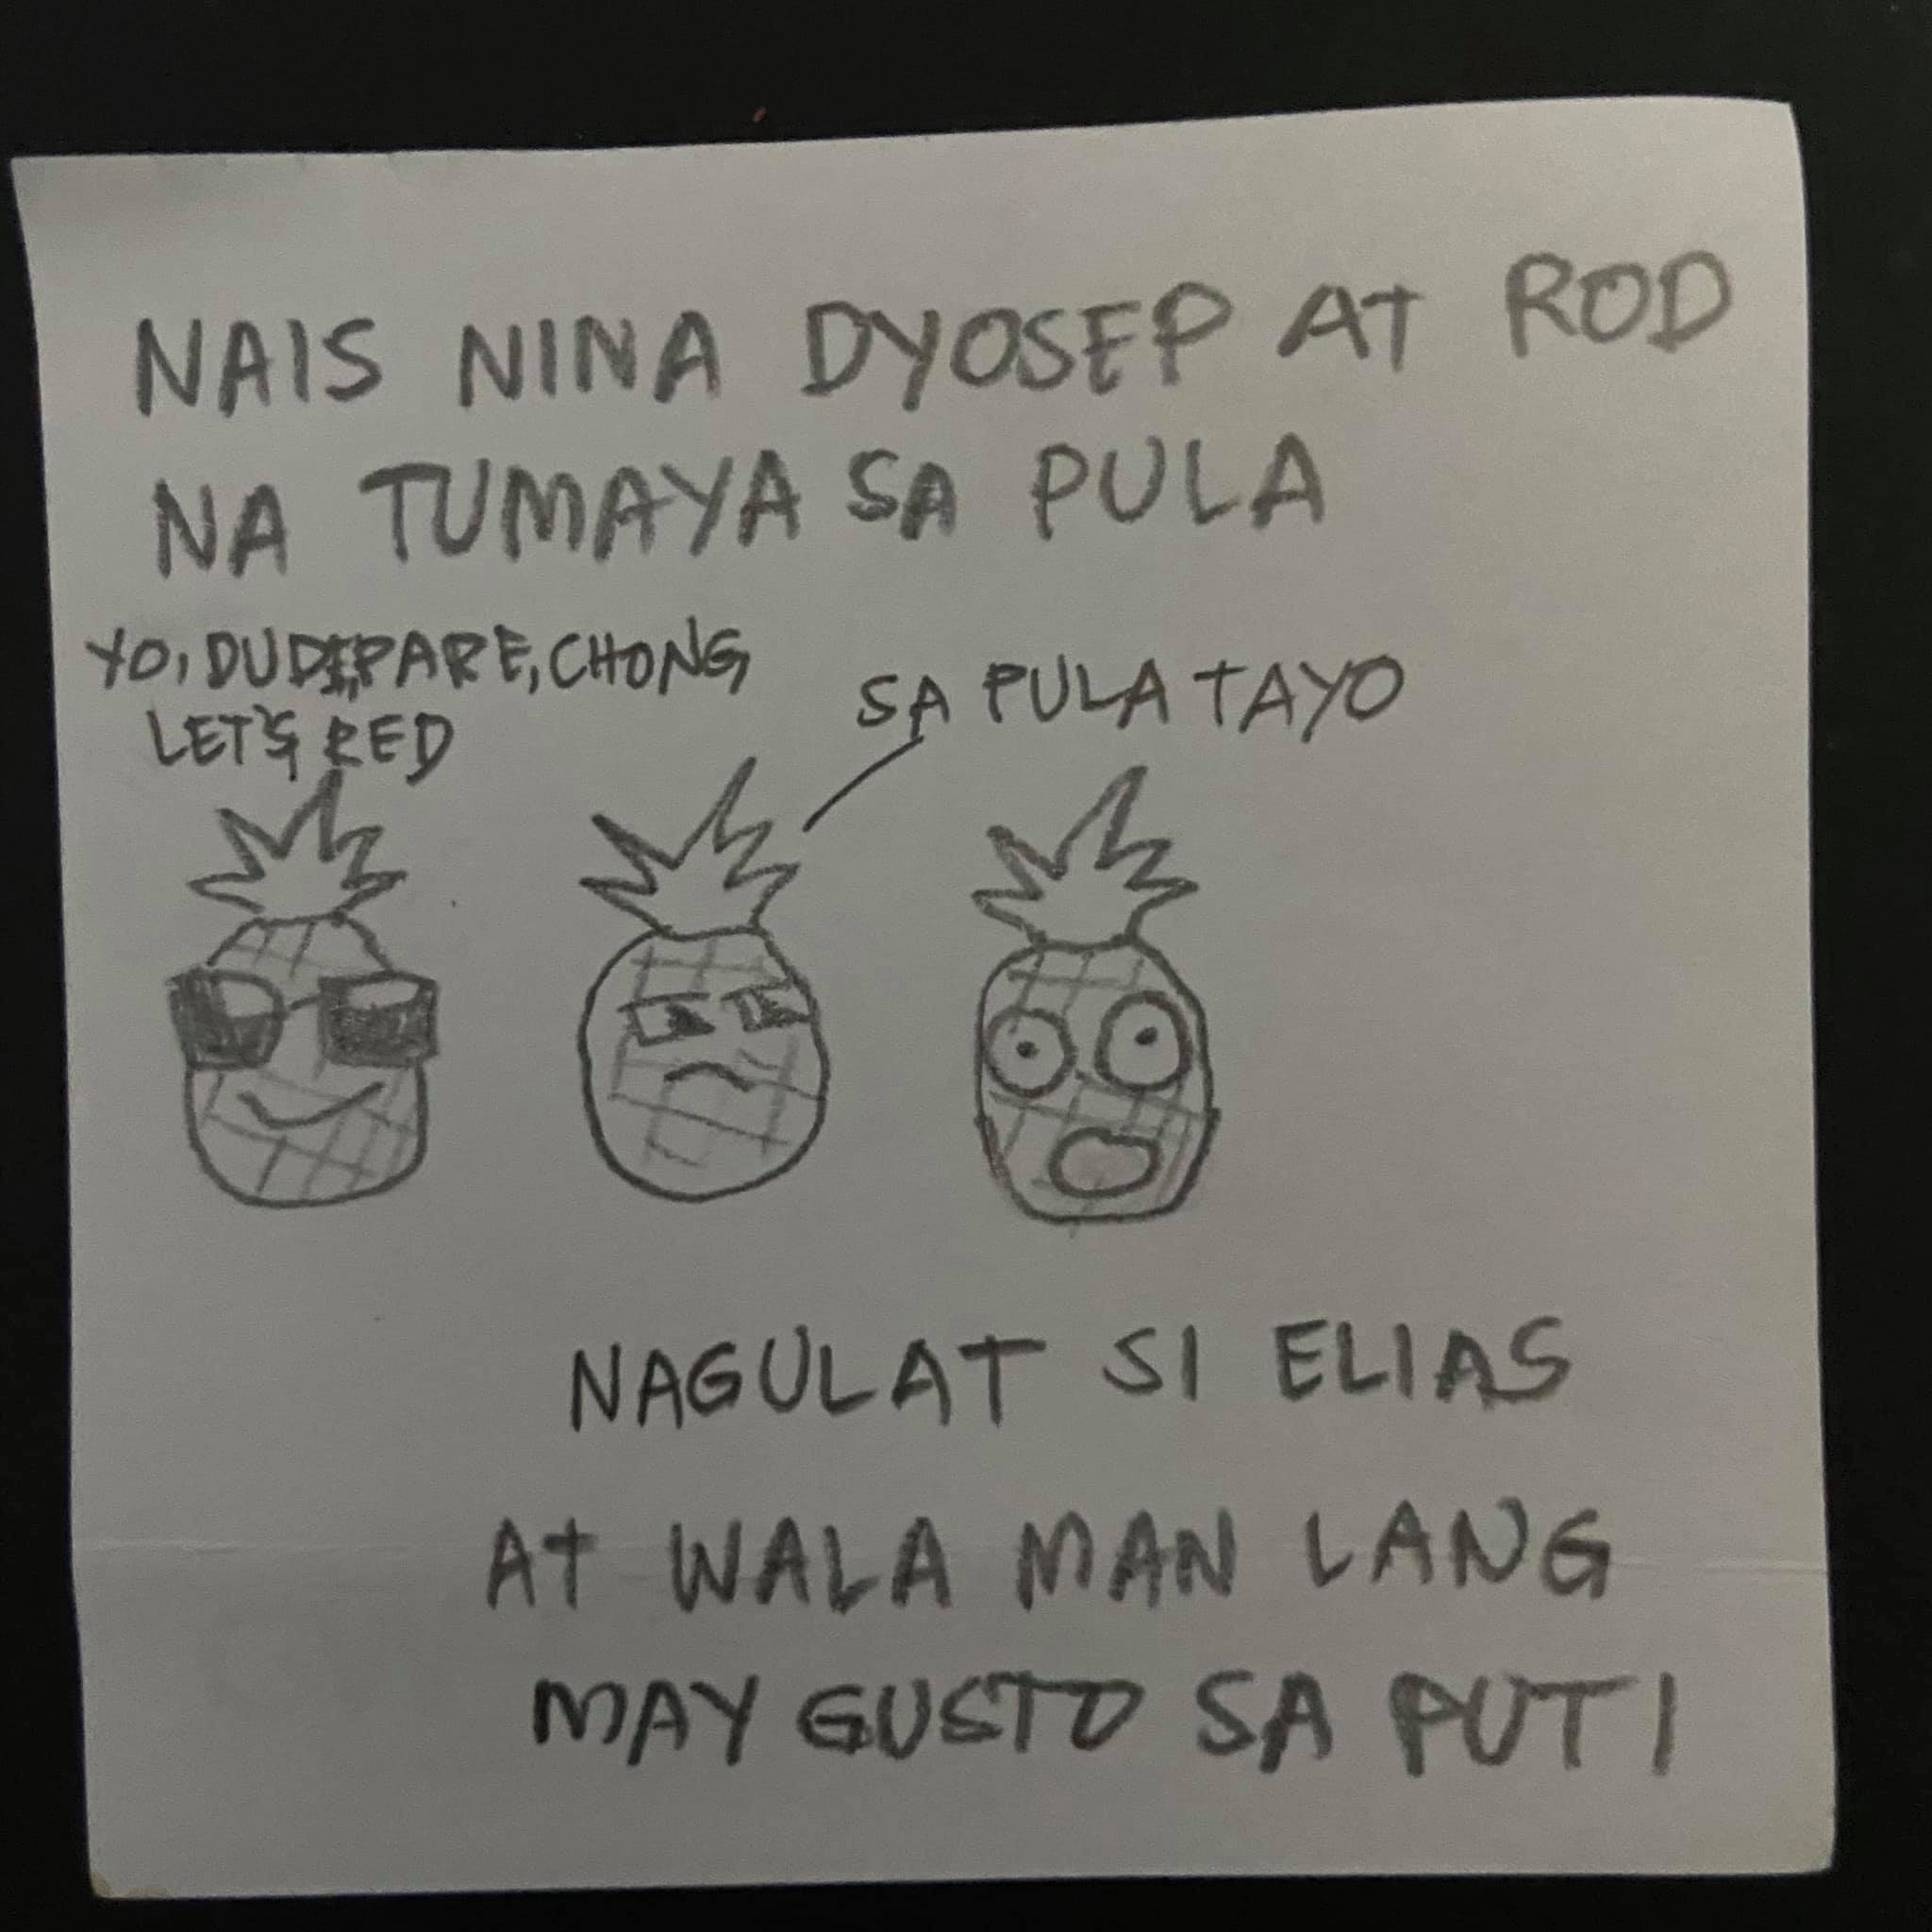 NAIS NINA DYOSEP AT ROD
NA TUMAYA SA PULA
YO, DUDE, PARE, CHONG
LET'S RED
SA PULA TAYO
NAGULAT SI ELIAS
AT WALA MAN LANG
MAY GUSTO SA PUTI